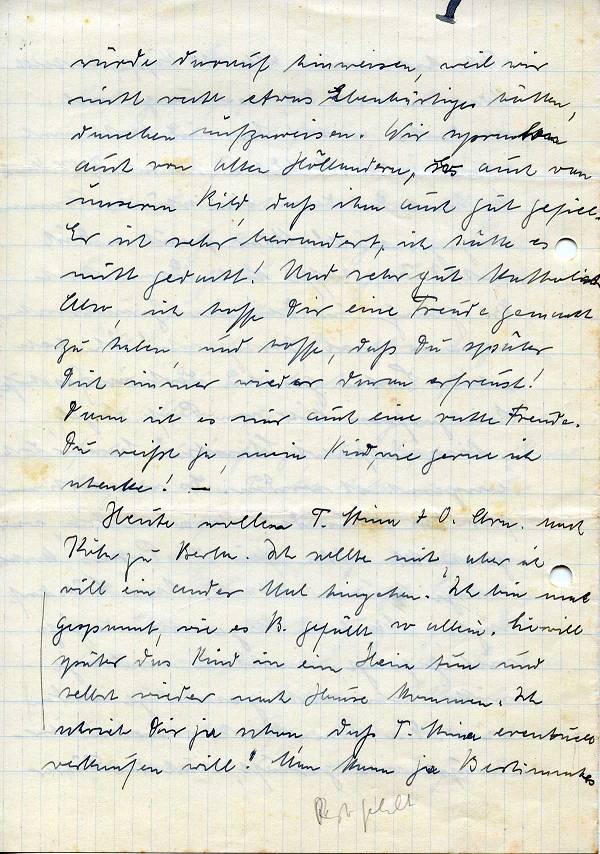 würde darauf hinweisen, weil wir
nicht recht etwas Ebenbürtiges hätten,
daneben aufzuweisen. Wir sprachen
auch von alten Holländern, auch von
unserm Bild, daß ihm auch gut gefiel.
Er ist sehr bewandert, ich hätte es
nicht gedacht! Und sehr gut katholisch
Also, ich hoffe Dir eine Freude gemacht
zu haben, und hoffe, daß Du später
Dich immer wieder daran erfreust!
Dann ist es mir auch eine rechte Freude.
Du weißt ja, mein Kind, wie gerne ich
schenke! —
Heute wollen T. Stina + O. Arn. nach
Köln zu Berta. Ich sollte mit, aber ich
will ein ander Mal hingehen. Ich bin mal
gespannt, wie es B. gefällt so allein. Sie will
später das Kind in ein Heim tun und
selbst wieder nach Hause kommen. Ich
schrieb Dir ja schon daß T. Stina eventuell
verkaufen will! Man kann ja Bestimmtes
Rest fehlt